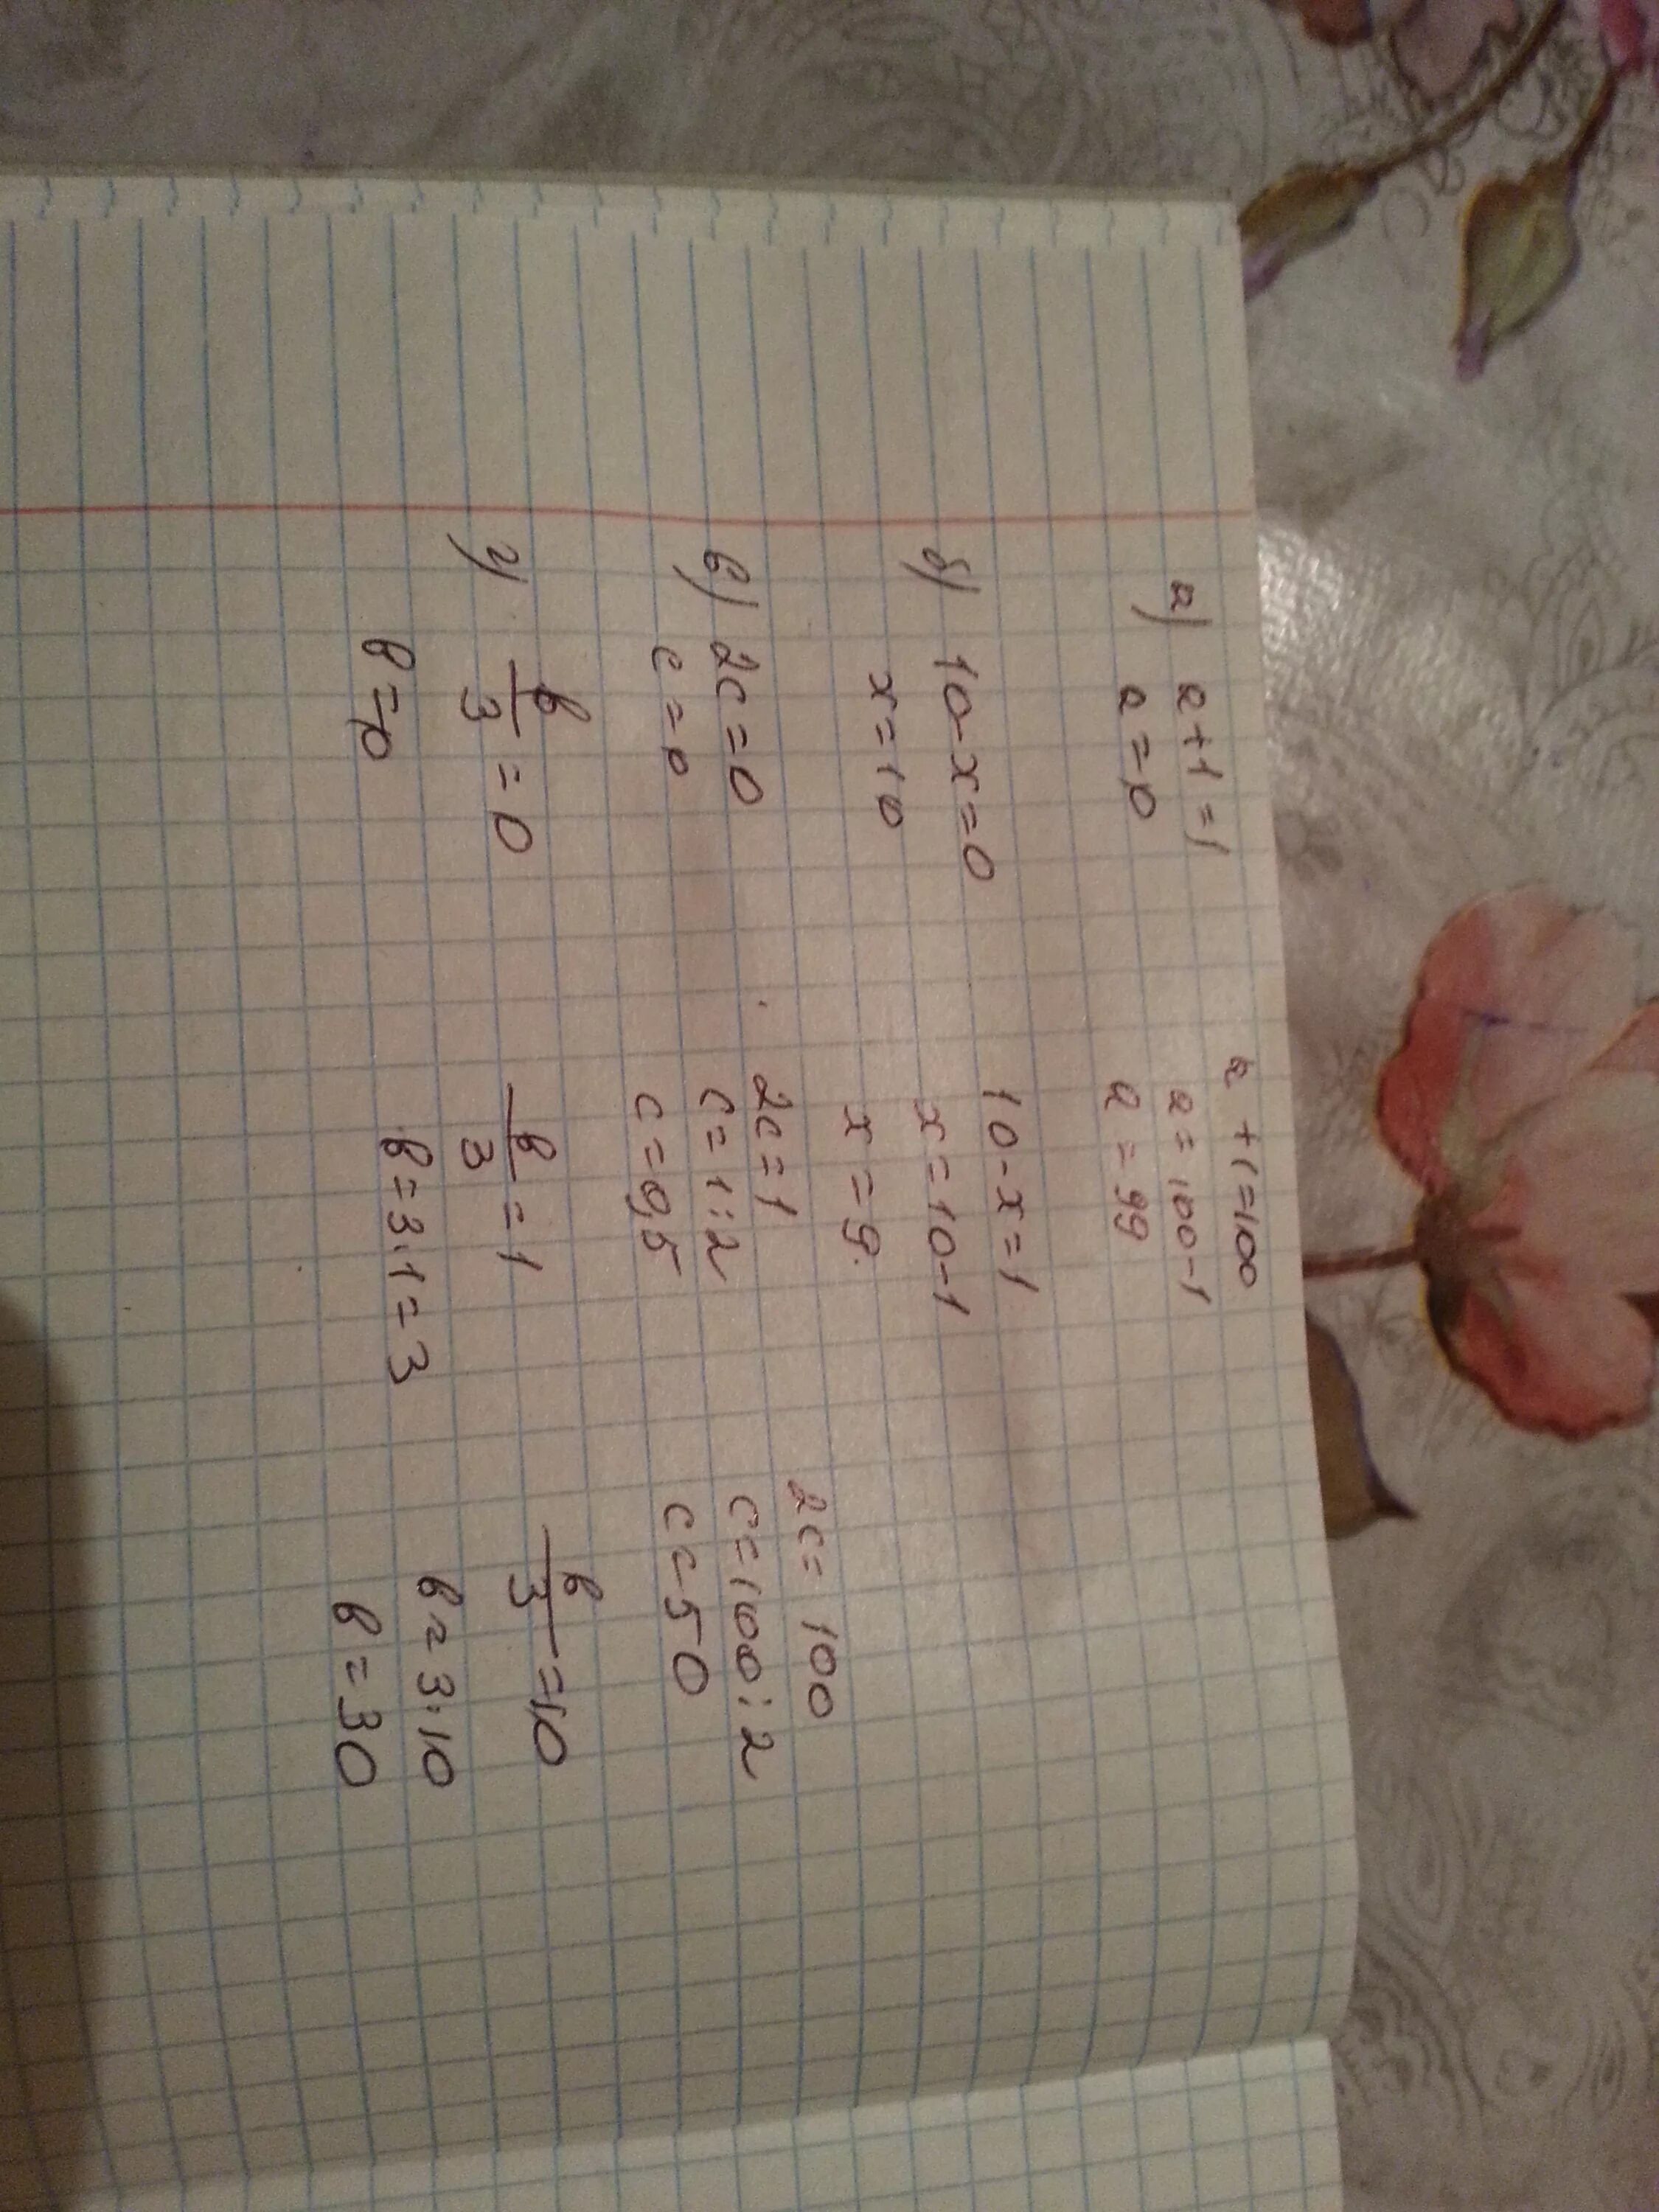 а) а+1=1 а+1=100
а=0 а=100-1
а=99
б) 10-х=0 10-х=1
х=10 х=10-1
х=9.
в) 2с=0 2с=1 2с=100
с=0 с=1:2 с=100:2
с=0,5 с=50
г) в/3=0 в/3=1 в/3=10
в=0 в=3·1=3 в=3·10
в=30